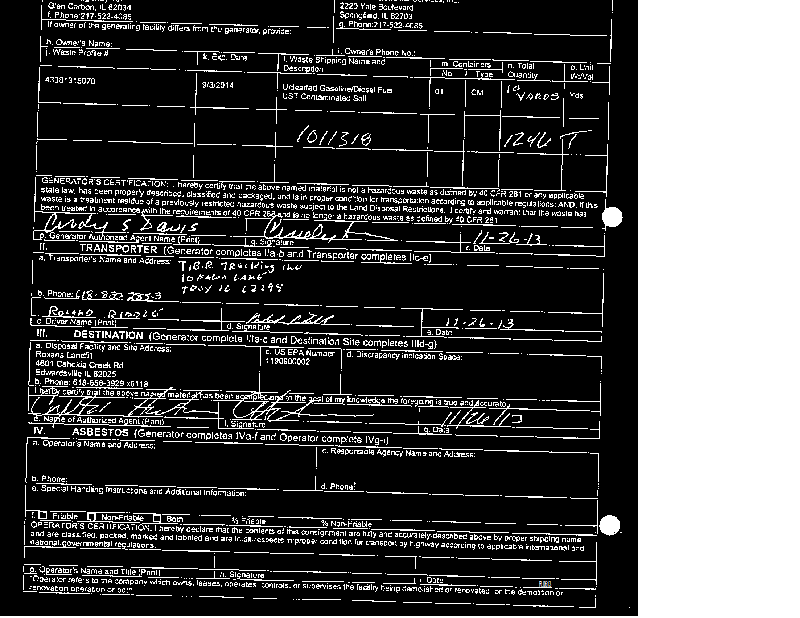 Glen Carbon, IL 62034
2220 Yale Boulevard
Springfield, IL 62703
f. Phone:217-522-4085
g. Phone:217-522-4085
If owner of the generating facility differs from the generator, provide:
h. Owner's Name:
i. Owner's Phone No.:
j. Waste Profile #
k. Exp. Date
l. Waste Shipping Name and Description
m. Containers
No / Type
n. Total Quantity
o. Unit Wt/Vol
9/3/2014
Unleaded Gasoline/Diesel Fuel
UST Contaminated Soil
01
CM
10 YARDS
Yds
1011318
1246 T
GENERATOR'S CERTIFICATION: I hereby certify that the above named material is not a hazardous waste as defined by 40 CFR 261 or any applicable
state law, has been properly described, classified and packaged, and is in proper condition for transportation according to applicable regulations; AND, if this
waste is a treatment residue of a previously restricted hazardous waste subject to the Land Disposal Restrictions, I certify and warrant that the waste has
been treated in accordance with the requirements of 40 CFR 268 and is no longer a hazardous waste as defined by 40 CFR 261
Cindy S Davis
11-26-13
p. Generator Authorized Agent Name (Print)
q. Signature
r. Date
II. TRANSPORTER (Generator completes IIa-b and Transporter completes IIc-e)
a. Transporter's Name and Address:
T.B.R Trucking Inc
LANE
TROY IL
b. Phone:
ROLAND
11-26-13
c. Driver Name (Print)
d. Signature
e. Date
III. DESTINATION (Generator complete IIIa-c and Destination Site completes IIId-g)
a. Disposal Facility and Site Address:
c. US EPA Number
d. Discrepancy Indication Space:
Roxana Landfill
1190900002
4601 Cahokia Creek Rd
Edwardsville IL 62025
b. Phone: 618-656-3929 x6118
I hereby certify that the above named material has been accepted and to the best of my knowledge the foregoing is true and accurate.
11/26/13
e. Name of Authorized Agent (Print)
f. Signature
g. Date
IV. ASBESTOS (Generator completes IVa-f and Operator complete IVg-i)
a. Operator's Name and Address:
c. Responsible Agency Name and Address:
b. Phone:
d. Phone:
e. Special Handling Instructions and Additional Information:
f. Friable Non-Friable Both % Friable % Non-Friable
OPERATOR'S CERTIFICATION: I hereby declare that the contents of this consignment are fully and accurately described above by proper shipping name
and are classified, packed, marked and labeled and are in all respects in proper condition for transport by highway according to applicable international and
national governmental regulations.
g. Operator's Name and Title (Print)
h. Signature
i. Date
*Operator refers to the company which owns, leases, operates, controls, or supervises the facility being demolished or renovated, or the demolition or
renovation operation or both